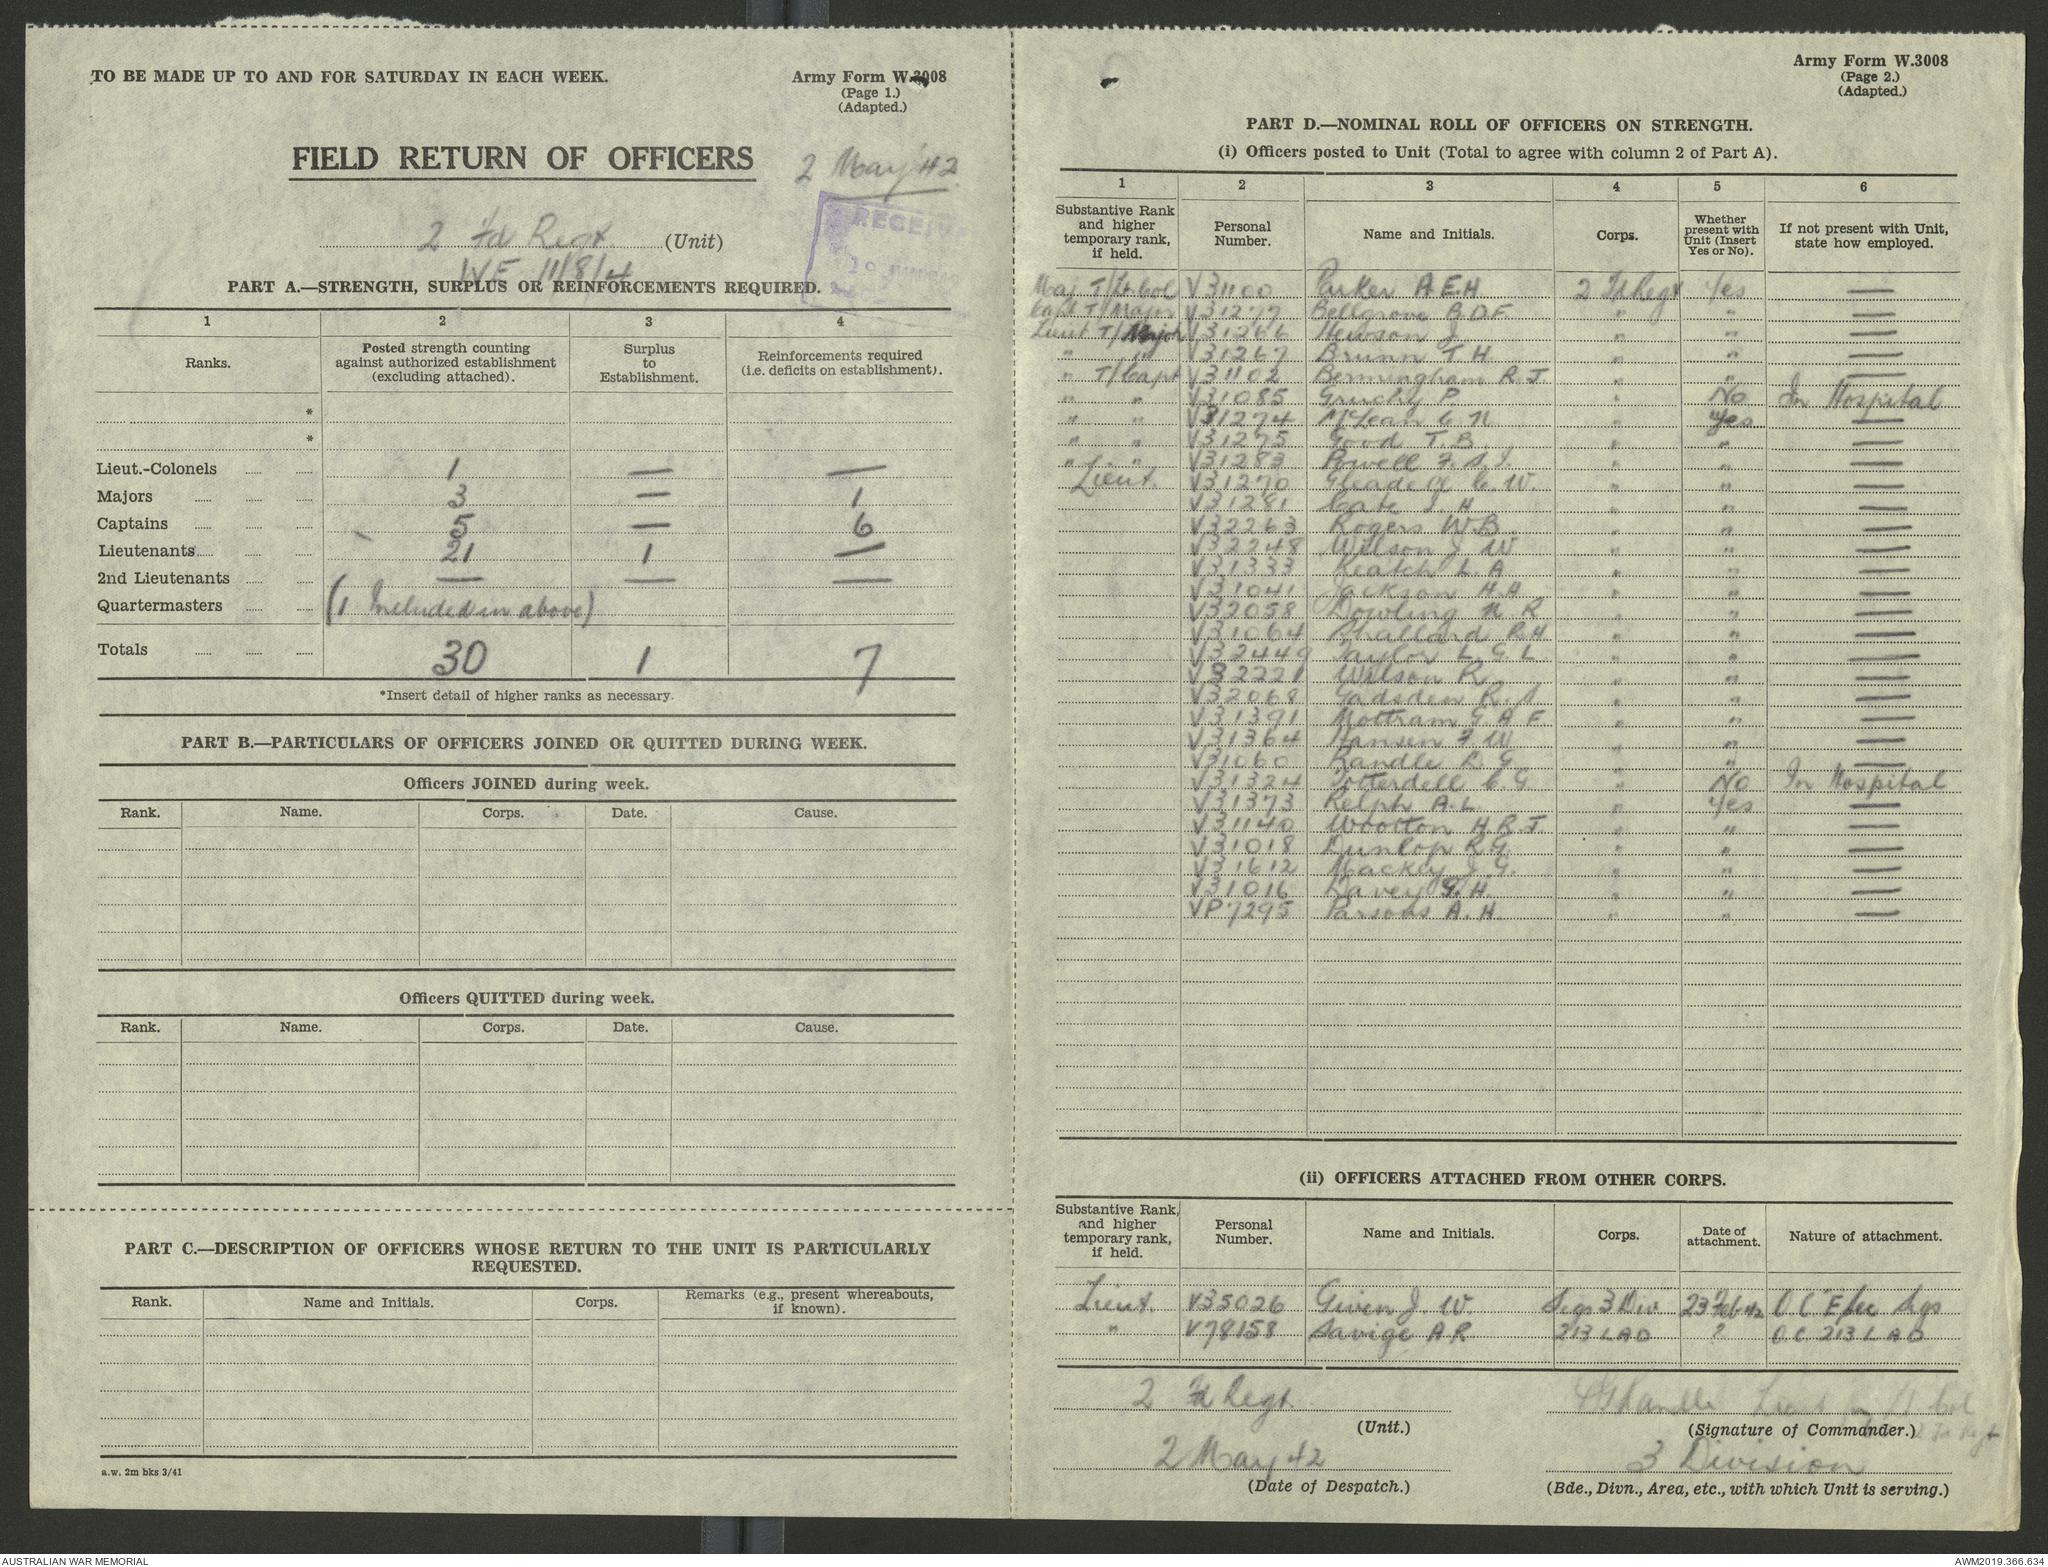 TO BE MADE UP TO AND FOR SATURDAY IN EACH WEEK.
Army Form W.3008
(Page 1.)
(Adapted.)
FIELD RETURN OF OFFICERS
2 May '42
RECEIV
2 Fd Regt (Unit)
WE 11/8/4
PART A.—STRENGTH, SURPLUS OR REINFORCEMENTS REQUIRED.
1 2 3 4
Ranks. Posted strength counting against authorized establishment (excluding attached). Surplus to Establishment. Reinforcements required (i.e. deficits on establishment).
*
*
Lieut.-Colonels 1 — —
Majors 3 — 1
Captains 5 — 6
Lieutenants 21 1 —
2nd Lieutenants — — —
Quartermasters (1 Included in above)
Totals 30 1 7
*Insert detail of higher ranks as necessary.
PART B.—PARTICULARS OF OFFICERS JOINED OR QUITTED DURING WEEK.
Officers JOINED during week.
Rank. Name. Corps. Date. Cause.
Officers QUITTED during week.
Rank. Name. Corps. Date. Cause.
PART C.—DESCRIPTION OF OFFICERS WHOSE RETURN TO THE UNIT IS PARTICULARLY
REQUESTED.
Rank. Name and Initials. Corps. Remarks (e.g., present whereabouts, if known).
a.w. 2m bks 3/41
Army Form W.3008
(Page 2.)
(Adapted.)
PART D.—NOMINAL ROLL OF OFFICERS ON STRENGTH.
(i) Officers posted to Unit (Total to agree with column 2 of Part A).
1 2 3 4 5 6
Substantive Rank and higher temporary rank, if held. Personal Number. Name and Initials. Corps. Whether present with Unit (Insert Yes or No). If not present with Unit, state how employed.
Maj T/Lt Col V31100 Parker A.E.H 2 Fd Regt Yes —
Capt T/Major V31277 Bellgrove B.O.F. " " —
Lieut T/Major V31266 Hewson J " " —
" " V31267 Brunn T.H. " " —
" T/Capt V31102 Bermingham R.J. " " —
" " V31085 Gruchy P " No In Hospital
" " V31274 McLean C N " Yes —
" " V31275 Good T.B. " " —
" " V31283 Powell F. S. J. " " —
Lieut. V31270 Gleadell C. W. " " —
V31281 Cate J H " " —
V32263 Rogers W.B " " —
V32248 Wilson J. W " " —
V31333 Keatch L. A " " —
V31041 Jackson H.H " " —
V32058 Dowling N R " " —
V31064 Shallard R.H. " " —
V32449 Taylor L. G. L " " —
V32221 Wilson R. " " —
V32068 Gadsden R. S " " —
V31391 Mottram G A F. " " —
V31364 Hansen F W " " —
V31060 Randle R. G " " —
V31324 Totterdell C. G. " No In Hospital
V31373 Relph A.L. " Yes —
V31140 Wootton H.R.J. " " —
V31018 Dunlop R.G. " " —
V31612 Mackey J. G. " " —
V31016 Davey G.H. " " —
VP7295 Parsons A.H. " " —
(ii) OFFICERS ATTACHED FROM OTHER CORPS.
Substantive Rank, and higher temporary rank, if held. Personal Number. Name and Initials. Corps. Date of attachment. Nature of attachment.
Lieut. V35026 Given J. W Sigs 3 Div 23 Feb 42 O C E Sec Sigs
" V78158 Savige A R 213 L A D ? O C 213 L A D
2 Fd Regt.
(Unit.)
Lieut Lt Col
2 Fd Regt
(Signature of Commander.)
2 May 42
(Date of Despatch.)
3 Division
(Bde., Divn., Area, etc., with which Unit is serving.)
AUSTRALIAN WAR MEMORIAL
AWM2019.366.634